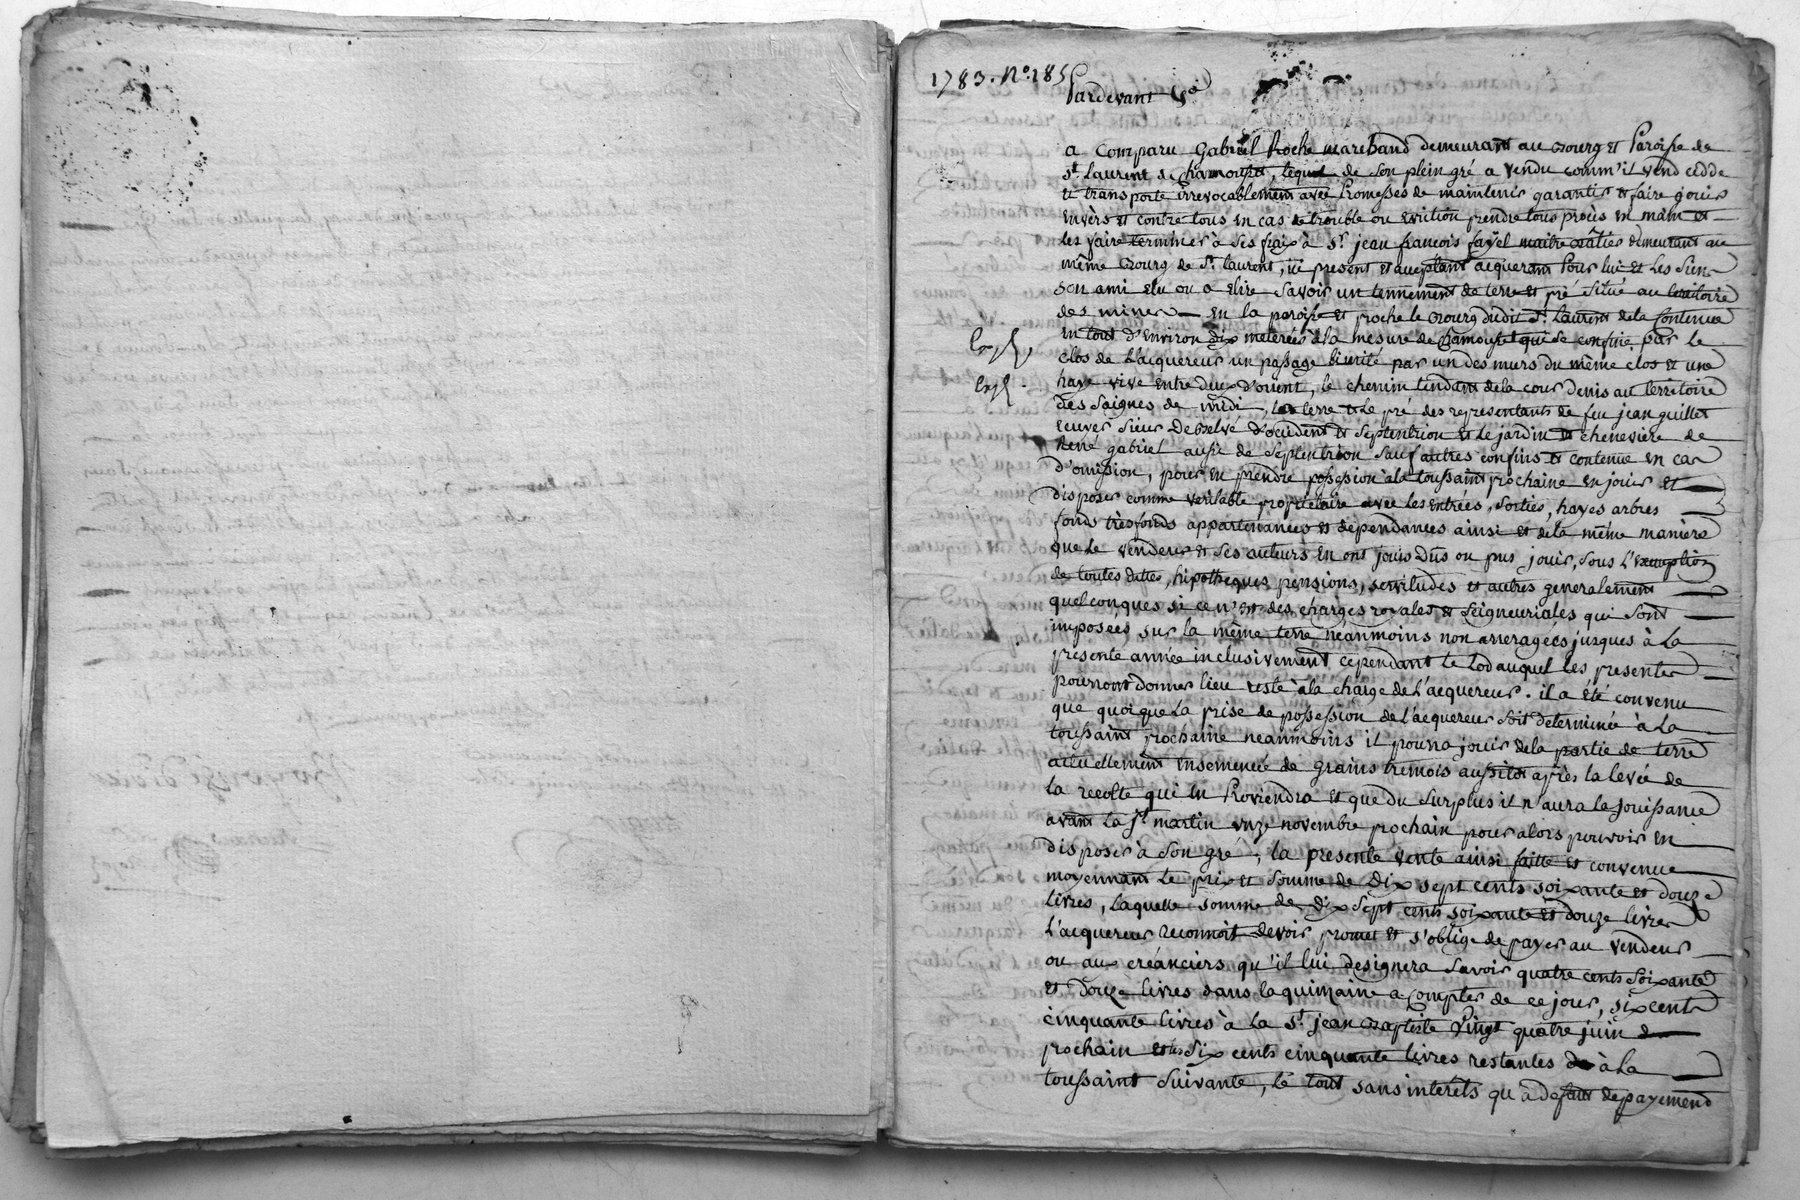 1783. N.º 185
Pardevant &ª
a Comparu Gabriel Roche marchand demeurant au Bourg et Paroisse de
St. Laurent de Chamousset, lequel de son plein gré a vendu comm'il vend cedde
et transporte irrevocablement avec Promesses de maintenir garantir et faire jouir
envèrs et contre tous en cas de trouble ou eviction prendre tous procès en main et
les faire terminer à ses fraix à Sr. jean françois fayel maitre demeurant au
même Bourg de St. laurent, ici present et acceptant acquerant Pour lui et les siens
son ami elu ou a elire savoir un tennement de terre et pré situé au territoire
des mines en la paroisse et proche le Bourg dudit St. Laurent de la Contenue
en tout d'environ dix meterées à la mesure de Chamousset qui se confine par le
clos de l'acquereur un passage par un des murs du même clos et une
haye vive entre deux d'orient, le chemin tendant de la cour denis au territoire
des Saignes de midi, la terre et le pré des representants de feu jean guillet
sieur d'occident et septentrion et le jardin et cheneviere de
René gabriel aussi de septentrion sauf autres confins et contenue en cas
d'omission, pour en prendre possession à la toussaint prochaine en jouir et
disposer comme veritable proprietaire avec les entrées, sorties, hayes arbres
fonds trèsfonds appartenances et dependances ainsi et de la même manière
que le vendeur et ses auteurs en ont joui dus ou pus jouir, sous l'exemption
de toutes dettes, hipotheques, pensions, servitudes et autres generalement
quelconques si ce n'est des charges royales et seigneuriales qui sont
imposées sur la même terre neanmoins non arreragées jusques à la
presente année inclusivement cependant le lod auquel les presentes
pourront donner lieu reste à la charge de l'acquereur. il a été convenu
que quoique la prise de possession de l'acquereur soit determinée à la
toussaint prochaine neanmoins il pourra jouir de la partie de terre
actuellement ensemencée de grains tremois aussitôt après la levée de
la recolte qui en Proviendra et que du surplus il n'aura la jouissance
avant la St. martin onze novembre prochain pour alors pouvoir en
disposer à son gré, la presente vente ainsi faitte et convenue
moyennant le prix et somme de dix sept cents soixante et douze
livres, laquelle somme de dix sept cents soixante et douze livres
l'acquereur reconnoit devoir promet et s'oblige de payer au vendeur
ou aux créanciers qu'il lui designera savoir quatre cents soixante
et douze livres dans la quinzaine a compter de ce jour, six cents
cinquante livres à la St. jean Baptiste vingt quatre juin
prochain et les six cents cinquante livres restantes à la
toussaint suivante, le tout sans interêts qu'a defaut de payement